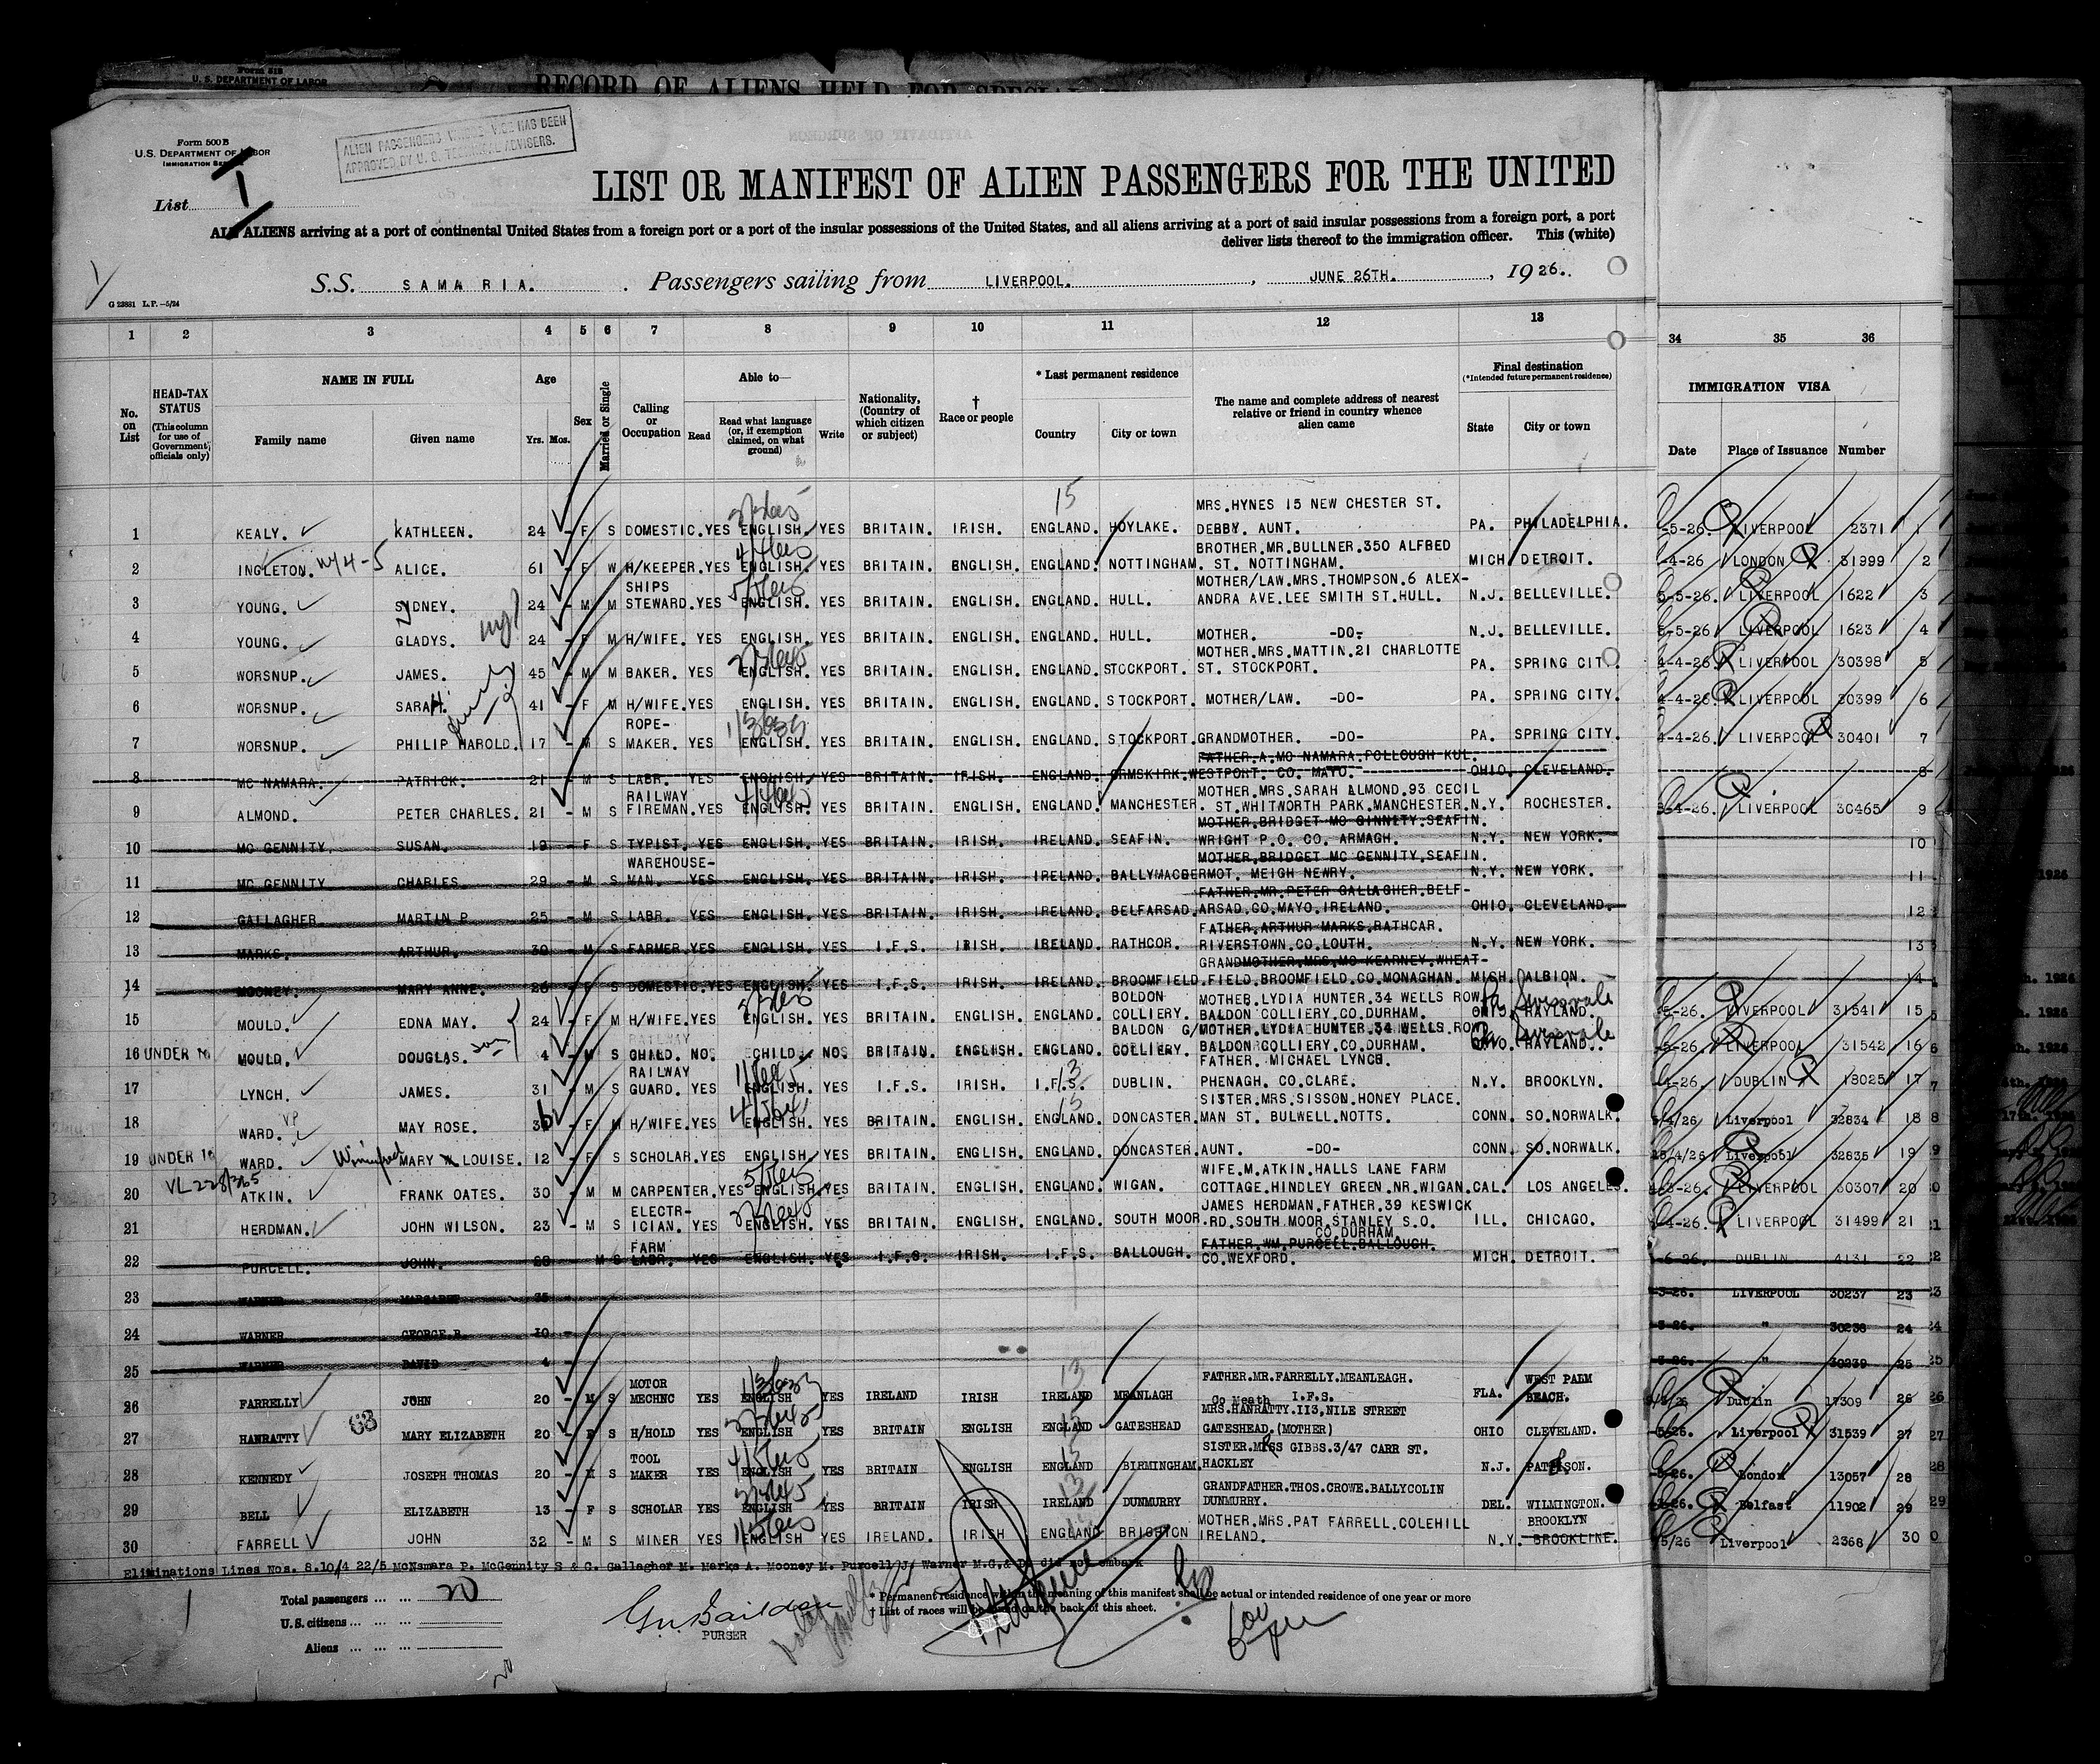 Form 518
U. S. DEPARTMENT OF LABOR
RECORD OF ALIENS HELD FOR SPECIAL
Form 500 B
U.S. DEPARTMENT OF LABOR
IMMIGRATION SERVICE
ALIEN PASSENGERS WHOSE VISE HAS BEEN
APPROVED BY U. S. TECHNICAL ADVISERS.
List 1
LIST OR MANIFEST OF ALIEN PASSENGERS FOR THE UNITED
ALL ALIENS arriving at a port of continental United States from a foreign port or a port of the insular possessions of the United States, and all aliens arriving at a port of said insular possessions from a foreign port, a port
deliver lists thereof to the immigration officer. This (white)
S.S. SAMARIA. Passengers sailing from LIVERPOOL. , JUNE 26TH. , 1926.
G 23881 L.P.-5/24
1 2 3 4 5 6 7 8 9 10 11 12 13 34 35 36
No. on List
HEAD-TAX STATUS (This column for use of Government officials only)
NAME IN FULL Family name Given name
Age Yrs. Mos.
Sex
Married or Single
Calling or Occupation
Able to— Read Read what language (or, if exemption claimed, on what ground) Write
Nationality, (Country of which citizen or subject)
† Race or people
* Last permanent residence Country City or town
The name and complete address of nearest relative or friend in country whence alien came
Final destination (*Intended future permanent residence) State City or town
IMMIGRATION VISA Date Place of Issuance Number
15
MRS.HYNES 15 NEW CHESTER ST.
1 KEALY. KATHLEEN. 24 - F S DOMESTIC. YES ENGLISH. YES BRITAIN. IRISH. ENGLAND. HOYLAKE. DEBBY. AUNT. PA. PHILADELPHIA. -5-26. LIVERPOOL 2371 1
BROTHER.MR.BULLNER.350 ALFBED
2 INGLETON. ALICE. 61 - F W H/KEEPER. YES ENGLISH. YES BRITAIN. ENGLISH. ENGLAND. NOTTINGHAM. ST. NOTTINGHAM. MICH DETROIT. -4-26 LONDON 31999 2
SHIPS MOTHER/LAW.MRS.THOMPSON.6 ALEX-
3 YOUNG. SYDNEY. 24 - M M STEWARD. YES ENGLISH. YES BRITAIN. ENGLISH. ENGLAND. HULL. ANDRA AVE.LEE SMITH ST.HULL. N.J. BELLEVILLE. 5-5-26. LIVERPOOL 1622 3
4 YOUNG. GLADYS. 24 - F M H/WIFE. YES ENGLISH. YES BRITAIN. ENGLISH. ENGLAND. HULL. MOTHER. -DO- N.J. BELLEVILLE. 5-5-26 LIVERPOOL 1623 4
MOTHER.MRS.MATTIN.21 CHARLOTTE
5 WORSNUP. JAMES. 45 - M M BAKER. YES ENGLISH. YES BRITAIN. ENGLISH. ENGLAND. STOCKPORT. ST. STOCKPORT. PA. SPRING CITY. 4-4-26. LIVERPOOL 30398 5
6 WORSNUP. SARAH. 41 - F M H/WIFE. YES ENGLISH. YES BRITAIN. ENGLISH. ENGLAND. STOCKPORT. MOTHER/LAW. -DO- PA. SPRING CITY. 4-4-26. LIVERPOOL 30399 6
ROPE-
7 WORSNUP. PHILIP HAROLD. 17 - M S MAKER. YES ENGLISH. YES BRITAIN. ENGLISH. ENGLAND. STOCKPORT. GRANDMOTHER. -DO- PA. SPRING CITY. 4-4-26. LIVERPOOL 30401 7
FATHER.A.MC NAMARA.POLLOUGH KUL.
8 MC NAMARA. PATRICK. 21 - M S LABR. YES ENGLISH. YES BRITAIN. IRISH. ENGLAND. ORMSKIRK. WESTPORT. CO. MAYO. OHIO. CLEVELAND. 8
RAILWAY MOTHER.MRS.SARAH ALMOND.93 CECIL
9 ALMOND. PETER CHARLES. 21 - M S FIREMAN. YES ENGLISH. YES BRITAIN. ENGLISH. ENGLAND. MANCHESTER. ST.WHITWORTH PARK.MANCHESTER. N.Y. ROCHESTER. -4-26. LIVERPOOL 30465 9
MOTHER.BRIDGET MC GINNITY.SEAFIN.
10 MC GENNITY. SUSAN. 19 - F S TYPIST. YES ENGLISH. YES BRITAIN. IRISH. IRELAND. SEAFIN. WRIGHT P.O. CO. ARMAGH. N.Y. NEW YORK. 10
WAREHOUSE- MOTHER.BRIDGET MC GENNITY.SEAFIN.
11 MC GENNITY CHARLES. 29 - M S MAN. YES ENGLISH. YES BRITAIN. IRISH. IRELAND. BALLYMACDERMOT. MEIGH NEWRY. N.Y. NEW YORK. 11
FATHER.MR.PETER GALLAGHER.BELF-
12 GALLAGHER MARTIN P. 25 - M S LABR. YES ENGLISH. YES BRITAIN. IRISH. IRELAND. BELFARSAD. ARSAD.CO.MAYO.IRELAND. OHIO. CLEVELAND. 12
FATHER.ARTHUR MARKS.RATHCAR.
13 MARKS. ARTHUR. 30 - M S FARMER. YES ENGLISH. YES I.F.S. IRISH. IRELAND. RATHCOR. RIVERSTOWN.CO.LOUTH. N.Y. NEW YORK. 13
GRANDMOTHER.MRS.MC KEARNEY.WHEAT-
14 MOONEY. MARY ANNE. 26 - F S DOMESTIC. YES ENGLISH. YES I.F.S. IRISH. IRELAND. BROOMFIELD. FIELD.BROOMFIELD.CO.MONAGHAN. MICH. ALBION. 14
BOLDON MOTHER.LYDIA HUNTER.34 WELLS ROW Pa Swissvale
15 MOULD. EDNA MAY. 24 - F M H/WIFE. YES ENGLISH. YES BRITAIN. ENGLISH. ENGLAND. COLLIERY. BALDON COLLIERY.CO.DURHAM. OHIO. RAYLAND. -5-26. LIVERPOOL 31541 15
BALDON MOTHER.LYDIA HUNTER.34 WELLS.ROW Pa Swissvale
16 UNDER 16 MOULD. DOUGLAS. son 4 - M S CHILD. NO. CHILD. NO. BRITAIN. ENGLISH. ENGLAND. COLLIERY. BALDON COLLIERY.CO.DURHAM. RAYLAND. -5-26. LIVERPOOL 31542 16
RAILWAY FATHER. MICHAEL LYNCH.
17 LYNCH. JAMES. 31 - M S GUARD. YES ENGLISH. YES I.F.S. IRISH. I.F.S. DUBLIN. PHENAGH. CO.CLARE. N.Y. BROOKLYN. -4-26. DUBLIN 18025 17
SISTER.MRS.SISSON.HONEY PLACE.
18 WARD. MAY ROSE. F M H/WIFE. YES ENGLISH. YES BRITAIN. ENGLISH. ENGLAND. DONCASTER. MAN ST. BULWELL.NOTTS. CONN. SO.NORWALK. /4/26 Liverpool 32834 18
19 UNDER 16 WARD. Winnifred MARY LOUISE. 12 - F S SCHOLAR. YES ENGLISH YES BRITAIN. ENGLISH. ENGLAND. DONCASTER. AUNT. -DO- CONN. SO.NORWALK. /4/26 Liverpool 32835 19
WIFE.M.ATKIN.HALLS LANE FARM
20 ATKIN. FRANK OATES. 30 - M M CARPENTER. YES ENGLISH YES BRITAIN. ENGLISH. ENGLAND. WIGAN. COTTAGE.HINDLEY GREEN.NR.WIGAN. CAL. LOS ANGELES. -3-26. LIVERPOOL 30307 20
ELECTR- JAMES HERDMAN.FATHER.39 KESWICK
21 HERDMAN. JOHN WILSON. 23 - M S ICIAN. YES ENGLISH. YES BRITAIN. ENGLISH. ENGLAND. SOUTH MOOR. RD.SOUTH MOOR.STANLEY S.O. ILL. CHICAGO. -4-26. LIVERPOOL 31499 21
CO.DURHAM.
FARM FATHER.WM.PURCELL.BALLOUGH.
22 PURCELL. JOHN. 28 M S LABR. YES ENGLISH. YES I.F.S. IRISH. I.F.S. BALLOUGH. CO.WEXFORD. MICH. DETROIT. -6-26. DUBLIN 4131 22
23 WARNER MARGARET 35 -3-26. LIVERPOOL 30237 23
24 WARNER GEORGE B. 10 - -3-26. " 30238 24
25 WARNER DAVID 4 - -3-26. " 30239 25
MOTOR FATHER.MR.FARRELLY.MEANLEAGH. WEST PALM
26 FARRELLY JOHN 20 - M S MECHNC YES ENGLISH YES IRELAND IRISH IRELAND MEANLAGH Co Meath I.F.S. FLA. BEACH. /26 Dublin 17309 26
MRS.HANRATTY.113,NILE STREET
27 HANRATTY MARY ELIZABETH 20 - F S H/HOLD YES ENGLISH YES BRITAIN ENGLISH ENGLAND GATESHEAD GATESHEAD.(MOTHER) OHIO CLEVELAND. -5-26. Liverpool 31539 27
TOOL SISTER.MISS GIBBS.3/47 CARR ST.
28 KENNEDY JOSEPH THOMAS 20 - M S MAKER YES ENGLISH YES BRITAIN ENGLISH ENGLAND BIRMINGHAM. HACKLEY N.J. PATERSON. -5-26. London 13057 28
GRANDFATHER.THOS.CROWE.BALLYCOLIN
29 BELL ELIZABETH 13 - F S SCHOLAR YES ENGLISH YES BRITAIN IRISH IRELAND DUNMURRY DUNMURRY. DEL. WILMINGTON. -26. Belfast 11902 29
MOTHER.MRS.PAT FARRELL.COLEHILL BROOKLYN
30 FARRELL JOHN 32 - M S MINER YES ENGLISH YES IRELAND. IRISH ENGLAND BRIGHTON IRELAND. N.Y. BROOKLINE. /5/26 Liverpool 2368 30
Eliminations Lines Nos. 8.10/4 22/5 McNamara P. McGennity S & C. Gallagher M. Marks A. Mooney M. Purcell J. Warner M.G.& D. did not embark
Total passengers ... ... 20
U.S. citizens ... ...
Aliens ... ...
PURSER
* Permanent residence within the meaning of this manifest shall be actual or intended residence of one year or more
† List of races will be found on the back of this sheet.